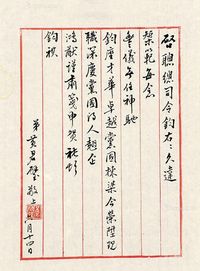 啓聰總司令鈞右：久違
榘範每念
豐儀無任神馳
鈞座才華卓越黨國棟梁今榮陞現
職深慶黨國得人翹企
鴻猷謹肅箋申賀祗頌
鈞祺
弟黃君璧敬上
八月十四日